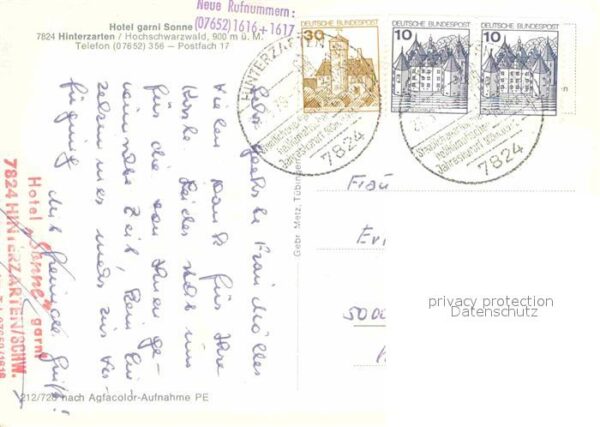 Hotel garni Sonne
7824 Hinterzarten / Hochschwarzwald, 900 m ü. M.
Telefon (07652) 356 – Postfach 17
Neue Rufnummern:
(07652) 1616 + 1617
30
DEUTSCHE BUNDESPOST
10
DEUTSCHE BUNDESPOST
10
DEUTSCHE BUNDESPOST
HINTERZARTEN
7824
7824
Sehr geehrte Frau Mölles
Vielen Dank für Ihre
Karte. Leider steht uns
für die von Ihnen ge-
wünschte Zeit, kein Ein-
zelzimmer mehr zur Ver-
fügung
Mit freundl. Grüße!
Hotel Sonne garni
7824 HINTERZARTEN/SCHW.
Gebr. Metz, Tübingen
Frau
5000
privacy protection
Datenschutz
212/728 nach Agfacolor-Aufnahme PE